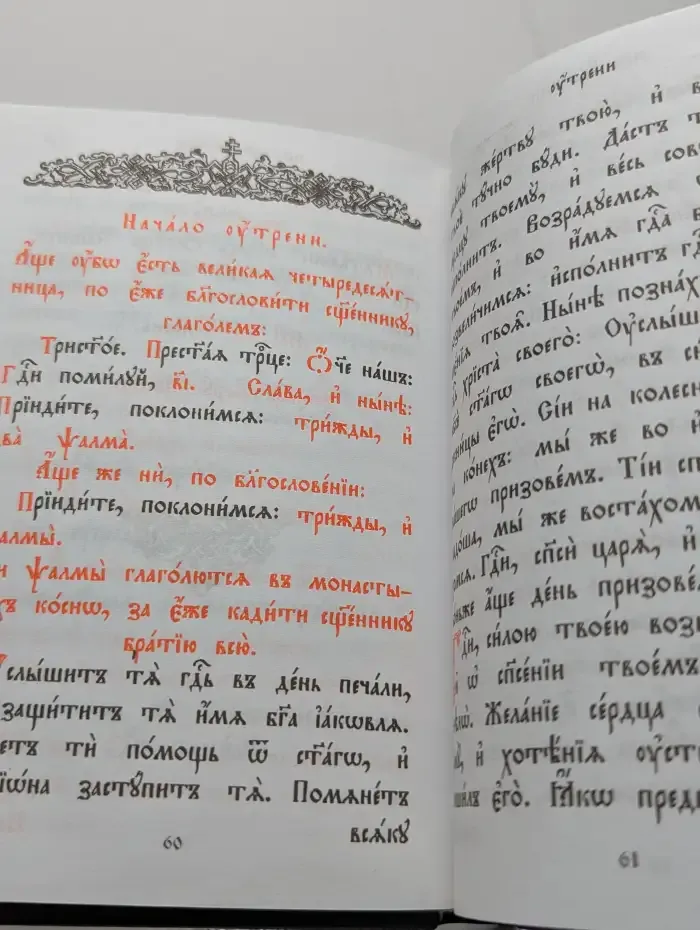 Нача́ло ᲂу҆́трени.
А҆́ще ᲂу҆́бѡ є҆́сть вели́каѧ четыредесѧ́т-
ница, по є҆́же блг҃ослови́ти сщ҃е́ннику,
глаго́лемъ:
Трист҃о́е. Прест҃а́ѧ трⷪ҇це: Ѻ҆́ч҃е на́шъ:
Гдⷭ҇и поми́лꙋй, в҃і. Сла́ва, и҆ ны́нѣ:
Прїиди́те, поклони́мсѧ: три́жды, и҆
ѱалма̀.
А҆́ще же нѝ, по блг҃ослове́нїи:
Прїиди́те, поклони́мсѧ: три́жды, и҆
Ѱалмы̀ глаго́лютсѧ въ монасты-
ко́снѡ, за є҆́же кади́ти сщ҃е́ннику
бра́тїю всю̀.
тѧ̀ гдⷭ҇ь въ де́нь печа́ли,
защи́титъ тѧ̀ и҆́мѧ бг҃а і҆а́кѡвлѧ.
тѝ по́мощь ѿ ст҃а́гѡ, и҆
застꙋ́питъ тѧ̀. Помѧне́тъ
всѧ́кꙋ
60
ᲂу҆́трени
же́ртвꙋ твою̀, и҆
тꙋ́чно бꙋ́ди. Да́стъ
твоемꙋ̀, и҆ ве́сь
Возра́дꙋемсѧ
и҆ во и҆́мѧ гдⷭ҇а
и҆спо́лнитъ
твоѧ̑. Ны́нѣ позна́хъ
хрⷭ҇та̀ своего̀: Оу҆слы́ши
ст҃а́гѡ своегѡ̀, въ
є҆гѡ̀. Сі́и на колесни
ко́нехъ: мы́ же во и҆́
призове́мъ. Ті́и
мы́ же воста́хомъ
Гдⷭ҇и, сп҃сѝ царѧ̀, и҆
а҆́ще де́нь призове́
си́лою твое́ю
ѡ҆ сп҃се́нїи твое́мъ
Жела́нїе се́рдца
и҆ хотѣ́нїѧ
є҆го̀. Ꙗ҆́кѡ
61